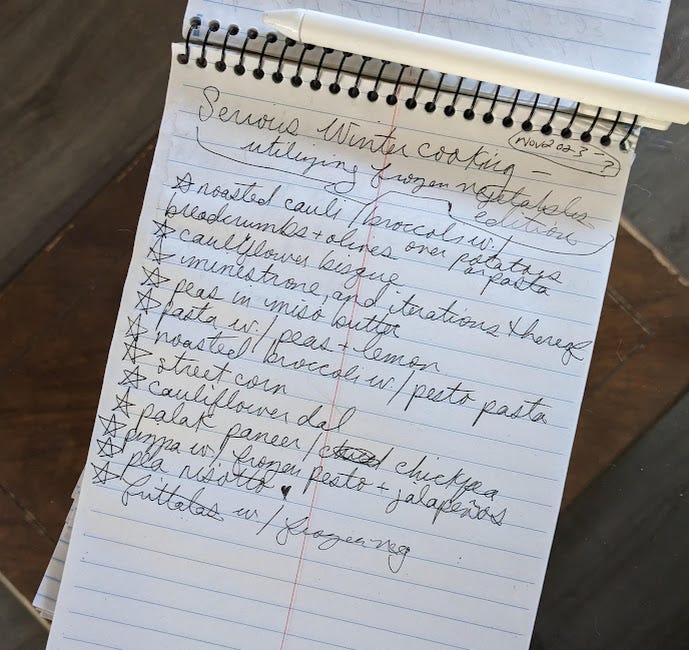 Serious Winter cooking -
Nov 2023 - ?
utilizing frozen vegetables
edition
☆ roasted cauli / broccoli w/
breadcrumbs + olives over potatoes
or pasta
☆ cauliflower bisque
☆ minestrone, and iterations thereof
☆ peas in miso butter
☆ pasta w/ peas + lemon
☆ roasted broccoli w/ pesto pasta
☆ street corn
☆ cauliflower dal
☆ palak paneer / chickpea
☆ pizza w/ frozen pesto + jalapeños
☆ pea risotto ♥
☆ frittatas w/ frozen veg